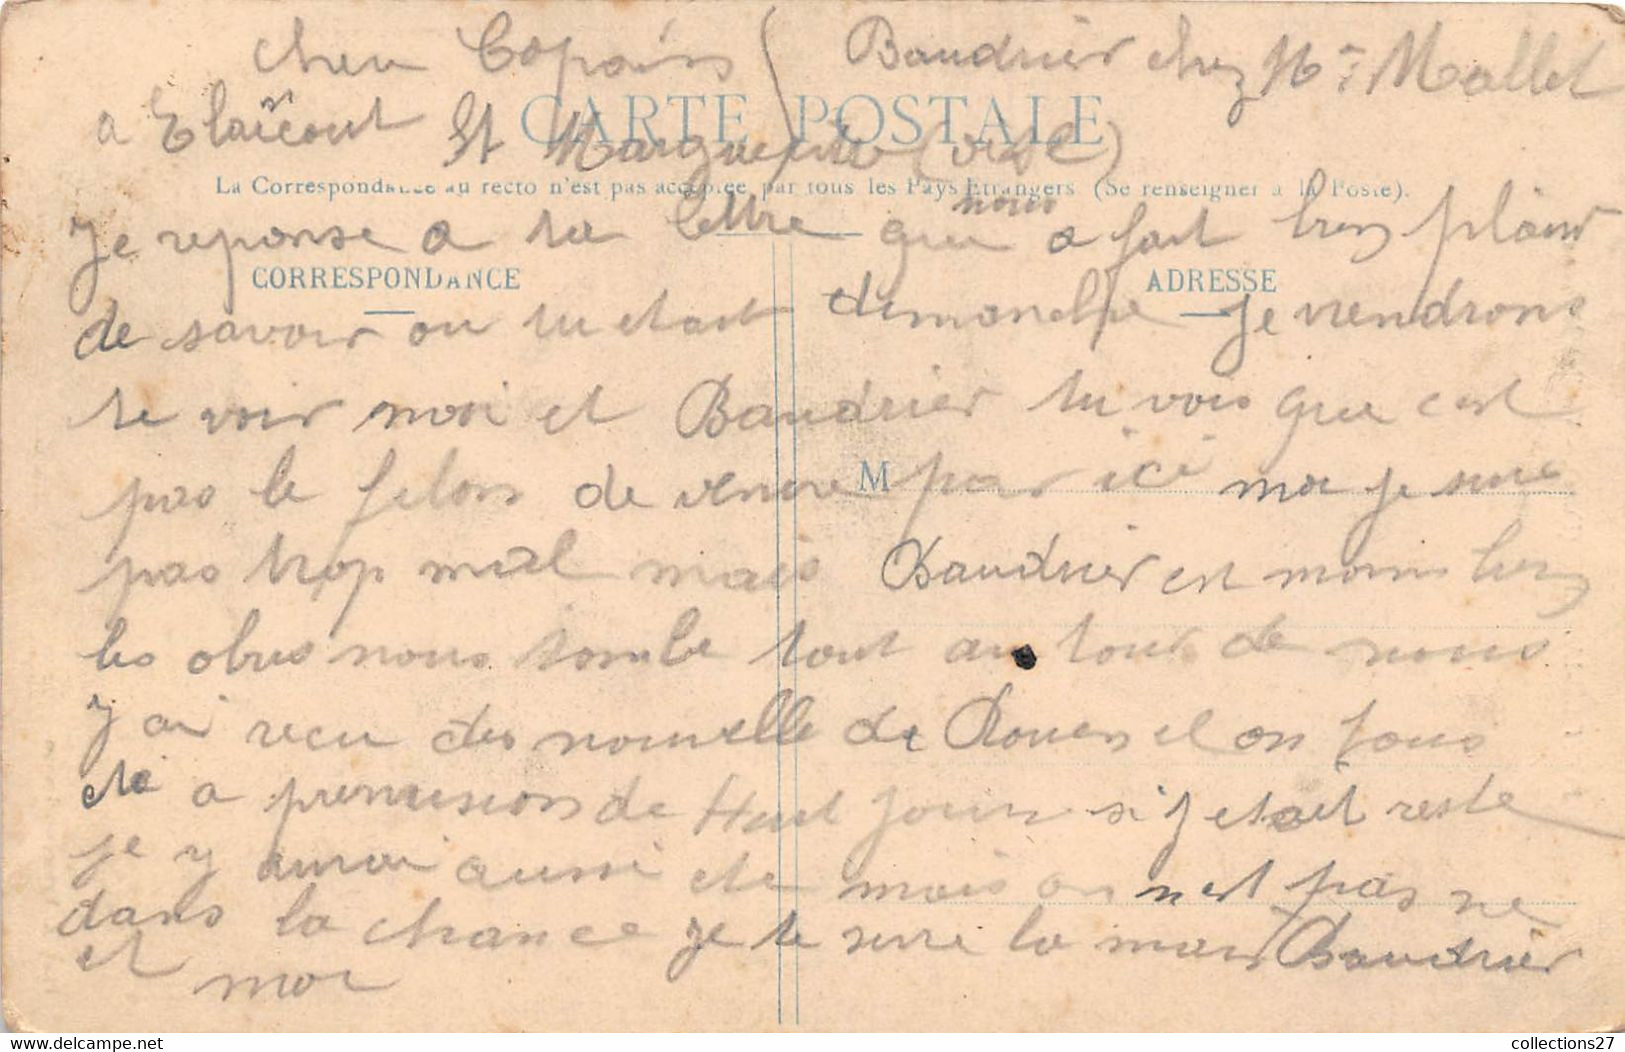 cher Copains Baudrier chez Mr Mallet
CARTE POSTALE
a Elaicourt St Marguerite (oise)
La Correspondance au recto n'est pas acceptée par tous les Pays Etrangers (Se renseigner à la Poste).
Je reponse a ta lettre que nous a fait bien plaisir
CORRESPONDANCE ADRESSE
de savoir ou tu etait dimanche je viendrons
te voir moi et Baudrier tu vois que c'est
pas le filons de venire par ici moi je suis
M
pas trop mal mais Baudrier est moins bien
les obus nous tombe tout au tour de nous
J ai recu des nouvelle de Rouen il on tous
ete a permission de Huit jours si j etait reste
je y aurai aussi ete mais on n'est pas ne
dans la chance je te serre la main Baudrier
et moi
collections27